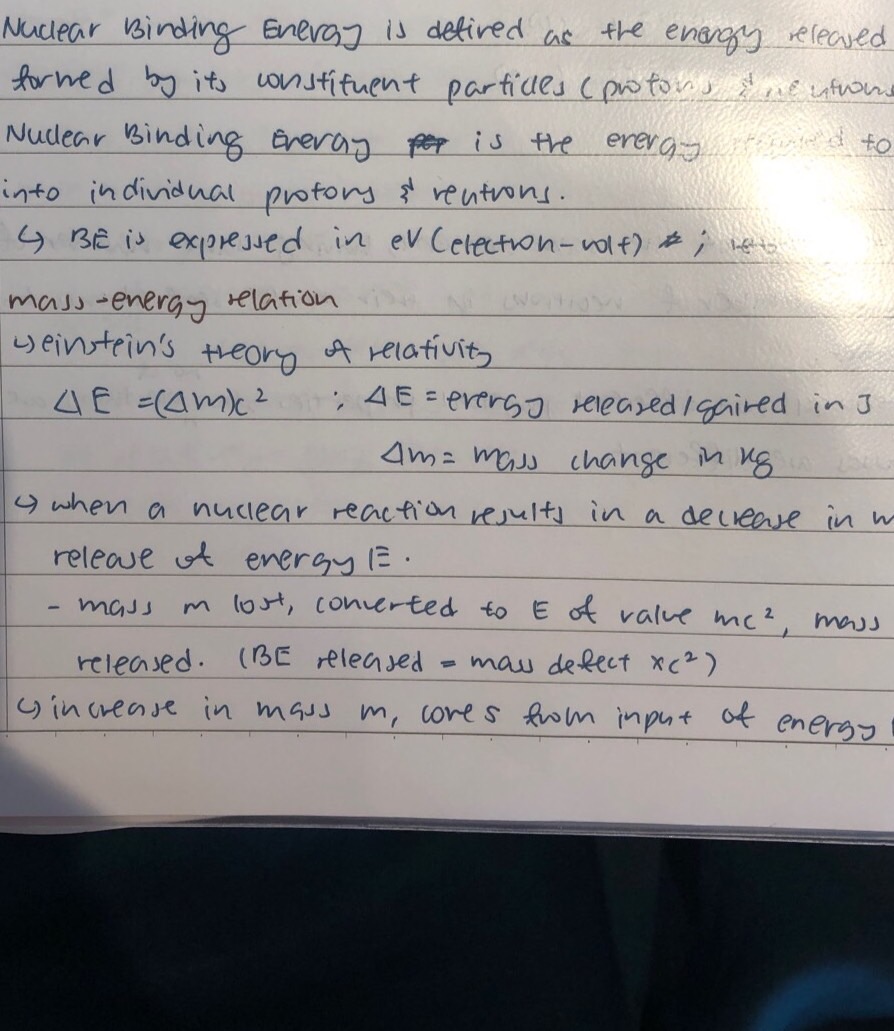 Nuclear Binding Energy is defined as the energy released
formed by its constituent particles (protons & neutrons
Nuclear Binding Energy is the energy to
into individual protons & neutrons.
↳ BE is expressed in eV (electron-volt) ;
mass-energy relation
↳ einstein's theory of relativity
ΔE = (Δm)c² ; ΔE = energy released/gained in J
Δm = mass change in kg
↳ when a nuclear reaction results in a decrease in
release of energy E.
- mass m lost, converted to E of value mc², mass
released. (BE released = mass defect xc²)
↳ increase in mass m, comes from input of energy